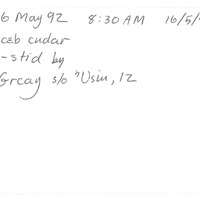 6 May 92 8:30 AM 16/5/
ceb cudar
-stid by
Grcay s/o "Usin, 12